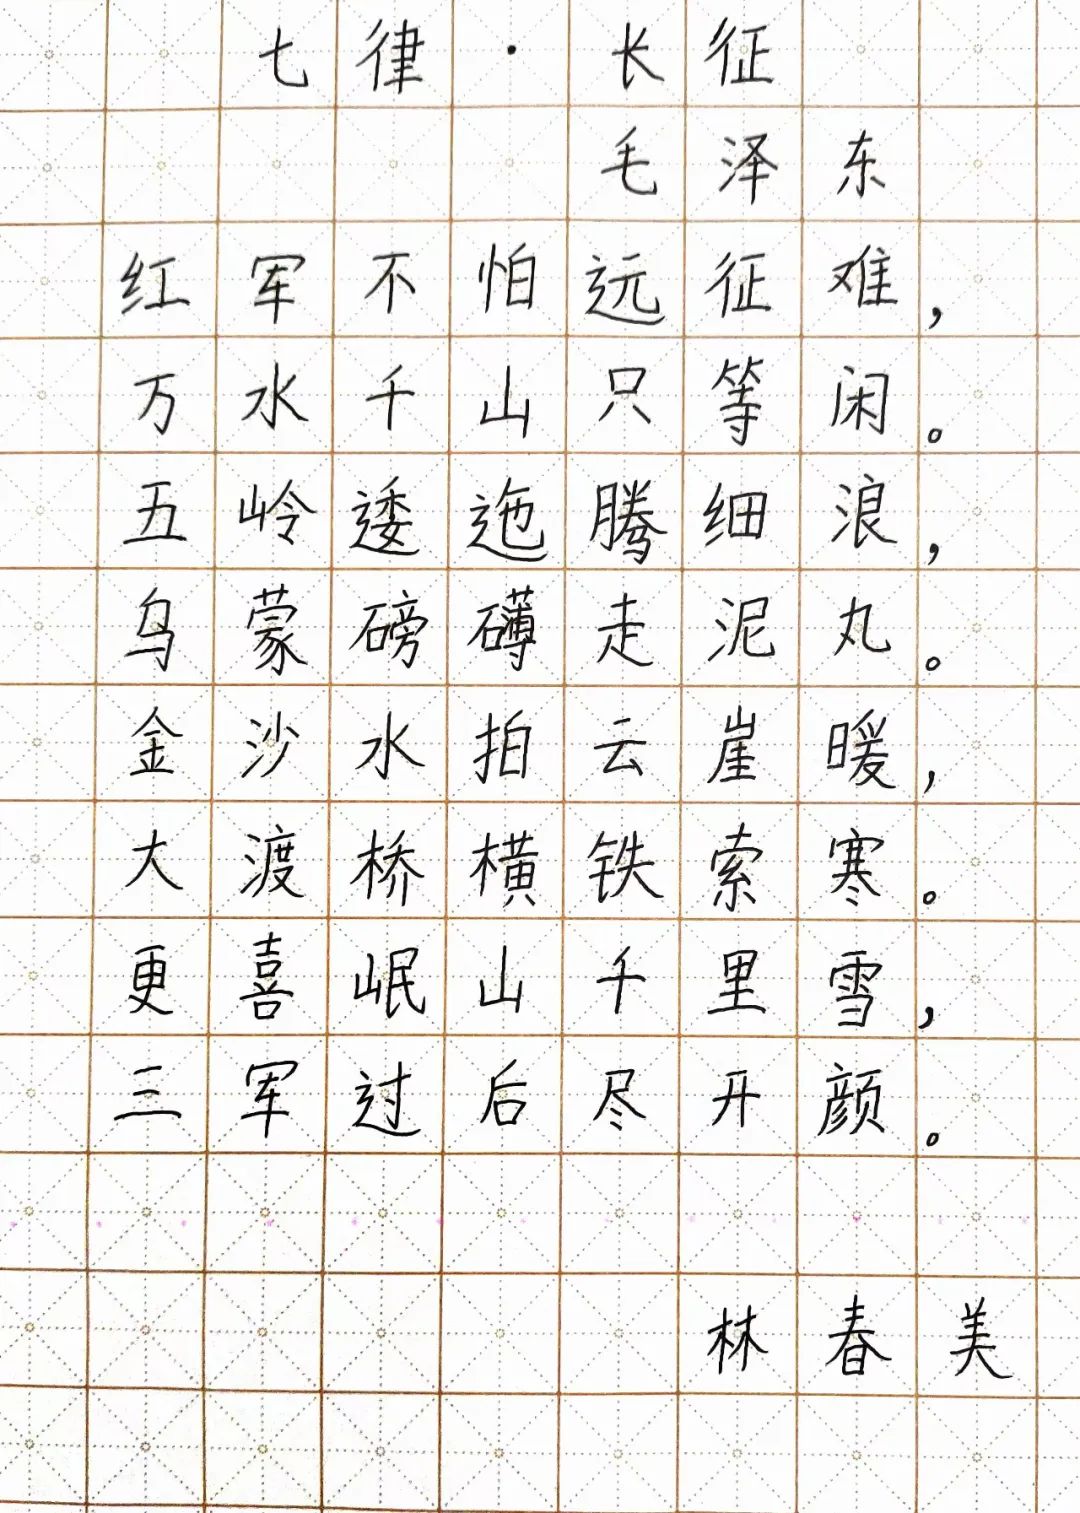 七律·长征
毛泽东
红军不怕远征难，
万水千山只等闲。
五岭逶迤腾细浪，
乌蒙磅礴走泥丸。
金沙水拍云崖暖，
大渡桥横铁索寒。
更喜岷山千里雪，
三军过后尽开颜。
林春美